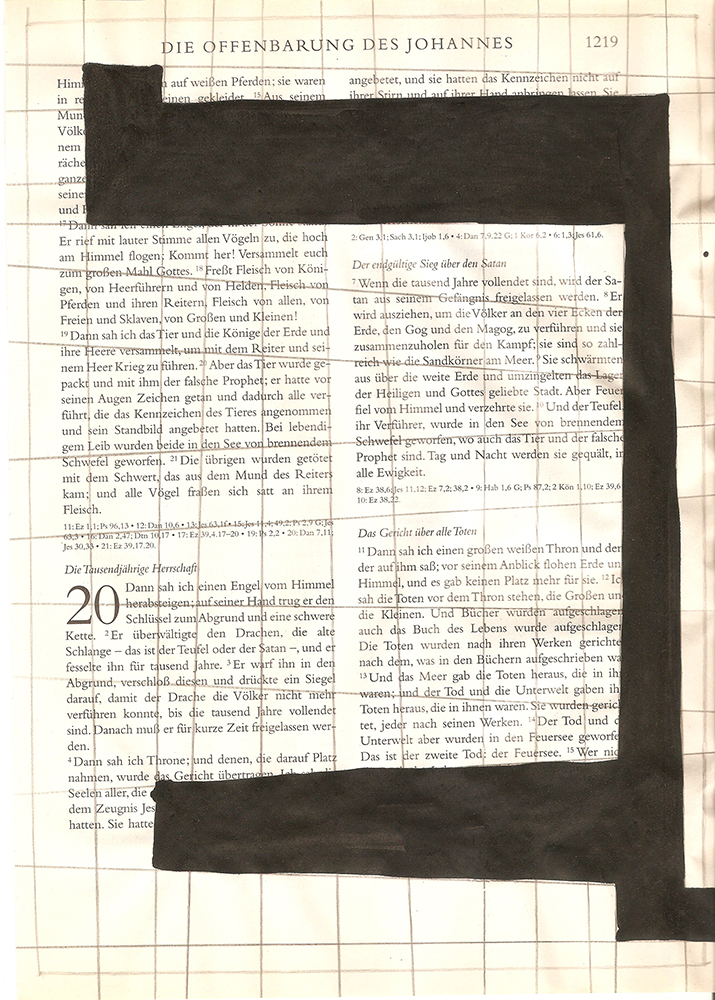 DIE OFFENBARUNG DES JOHANNES 1219
auf weißen Pferden; sie waren
in einen gekleidet. ¹⁵Aus seinem
Völke
nem
räche
ganze
seine
und
Er rief mit lauter Stimme allen Vögeln zu, die hoch
am Himmel flogen: Kommt her! Versammelt euch
zum großen Mahl Gottes. ¹⁸Freßt Fleisch von Köni-
gen, von Heerführern und von Helden, Fleisch von
Pferden und ihren Reitern, Fleisch von allen, von
Freien und Sklaven, von Großen und Kleinen!
¹⁹Dann sah ich das Tier und die Könige der Erde und
ihre Heere versammelt, um mit dem Reiter und sei-
nem Heer Krieg zu führen. ²⁰Aber das Tier wurde ge-
packt und mit ihm der falsche Prophet; er hatte vor
seinen Augen Zeichen getan und dadurch alle ver-
führt, die das Kennzeichen des Tieres angenommen
und sein Standbild angebetet hatten. Bei lebendi-
gem Leib wurden beide in den See von brennendem
Schwefel geworfen. ²¹Die übrigen wurden getötet
mit dem Schwert, das aus dem Mund des Reiters
kam; und alle Vögel fraßen sich satt an ihrem
Fleisch.
11: Ez 1,1; Ps 96,13 • 12: Dan 10,6 • 13: Jes 63,1f • 15: Jes 11,4; 49,2; Ps 2,9 G; Jes
63,3 • 16: Dan 2,47; Dtn 10,17 • 17: Ez 39,4.17–20 • 19: Ps 2,2 • 20: Dan 7,11;
Jes 30,33 • 21: Ez 39,17.20.
Die Tausendjährige Herrschaft
20 Dann sah ich einen Engel vom Himmel
herabsteigen; auf seiner Hand trug er den
Schlüssel zum Abgrund und eine schwere
Kette. ²Er überwältigte den Drachen, die alte
Schlange – das ist der Teufel oder der Satan –, und er
fesselte ihn für tausend Jahre. ³Er warf ihn in den
Abgrund, verschloß diesen und drückte ein Siegel
darauf, damit der Drache die Völker nicht mehr
verführen konnte, bis die tausend Jahre vollendet
sind. Danach muß er für kurze Zeit freigelassen wer-
den.
⁴Dann sah ich Throne; und denen, die darauf Platz
nahmen, wurde das Gericht übertragen.
Seelen aller, die
dem Zeugnis Jes
hatten. Sie hatte
angebetet, und sie hatten das Kennzeichen nicht auf
ihrer Stirn und auf ihrer Hand anbringen lassen. Sie
2: Gen 3,1; Sach 3,1; Ijob 1,6 • 4: Dan 7,9.22 G; 1 Kor 6,2 • 6: 1,3; Jes 61,6.
Der endgültige Sieg über den Satan
⁷Wenn die tausend Jahre vollendet sind, wird der Sa-
tan aus seinem Gefängnis freigelassen werden. ⁸Er
wird ausziehen, um die Völker an den vier Ecken der
Erde, den Gog und den Magog, zu verführen und sie
zusammenzuholen für den Kampf; sie sind so zahl-
reich wie die Sandkörner am Meer. ⁹Sie schwärmten
aus über die weite Erde und umzingelten das Lager
der Heiligen und Gottes geliebte Stadt. Aber Feuer
fiel vom Himmel und verzehrte sie. ¹⁰Und der Teufel,
ihr Verführer, wurde in den See von brennendem
Schwefel geworfen, wo auch das Tier und der falsche
Prophet sind. Tag und Nacht werden sie gequält, in
alle Ewigkeit.
8: Ez 38,6; Jes 11,12; Ez 7,2; 38,2 • 9: Hab 1,6 G; Ps 87,2; 2 Kön 1,10; Ez 39,6
10: Ez 38,22.
Das Gericht über alle Toten
¹¹Dann sah ich einen großen weißen Thron und den
der auf ihm saß; vor seinem Anblick flohen Erde un
Himmel, und es gab keinen Platz mehr für sie. ¹²Ic
sah die Toten vor dem Thron stehen, die Großen un
die Kleinen. Und Bücher wurden aufgeschlagen
auch das Buch des Lebens wurde aufgeschlagen
Die Toten wurden nach ihren Werken gerichte
nach dem, was in den Büchern aufgeschrieben wa
¹³Und das Meer gab die Toten heraus, die in ih
waren; und der Tod und die Unterwelt gaben ih
Toten heraus, die in ihnen waren. Sie wurden geric
tet, jeder nach seinen Werken. ¹⁴Der Tod und d
Unterwelt aber wurden in den Feuersee geworfe
Das ist der zweite Tod: der Feuersee. ¹⁵Wer nic